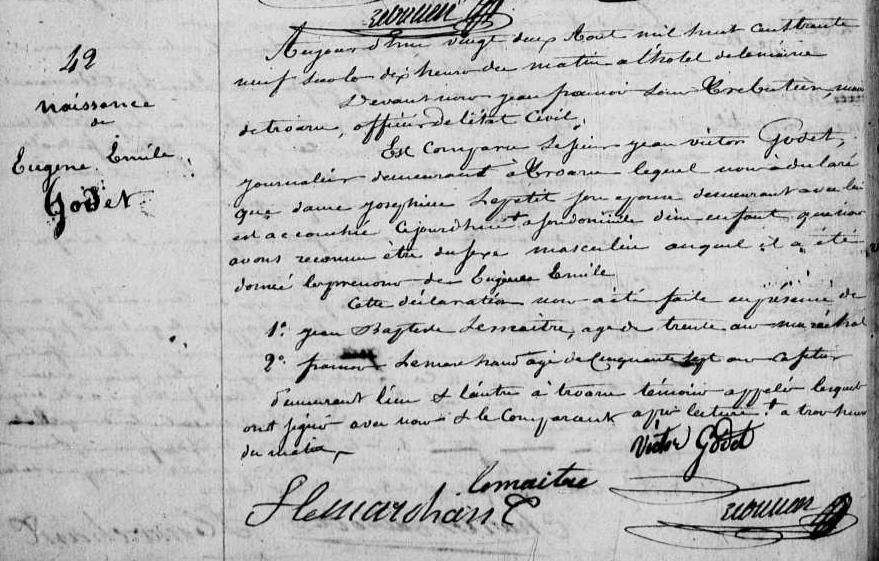 42
Naissance
de
Eugène Emile
Godet
Aujourd'hui vingt deux Aout mil huit cent trente
neuf sur les dix heures du matin a l'hotel de la mairie
Devant nous jean françois Trébutien, maire
de troarn, officier de l'état Civil,
Est Comparu le sieur jean victor Godet,
journalier demeurant à Troarn lequel nous a déclaré
que dame josephine Lepetit son epouse demeurant avec lui
est accouchée cejourdhui a son domicile d'un enfant que nous
avons reconnu être du sexe masculin auquel il a été
donné les prenoms de Eugène Emile
Cette déclaration nous a été faite en présence de
1°. jean Baptiste Lemaitre, agé de trente ans maréchal
2°. françois Lemarchand agé de Cinquante sept ans
demeurant l'un & l'autre à troarn témoins appelés lesquels
ont signé avec nous & le Comparant après lecture. a trois heures
du matin,
Victor Godet
lemaitre
Lemarchand